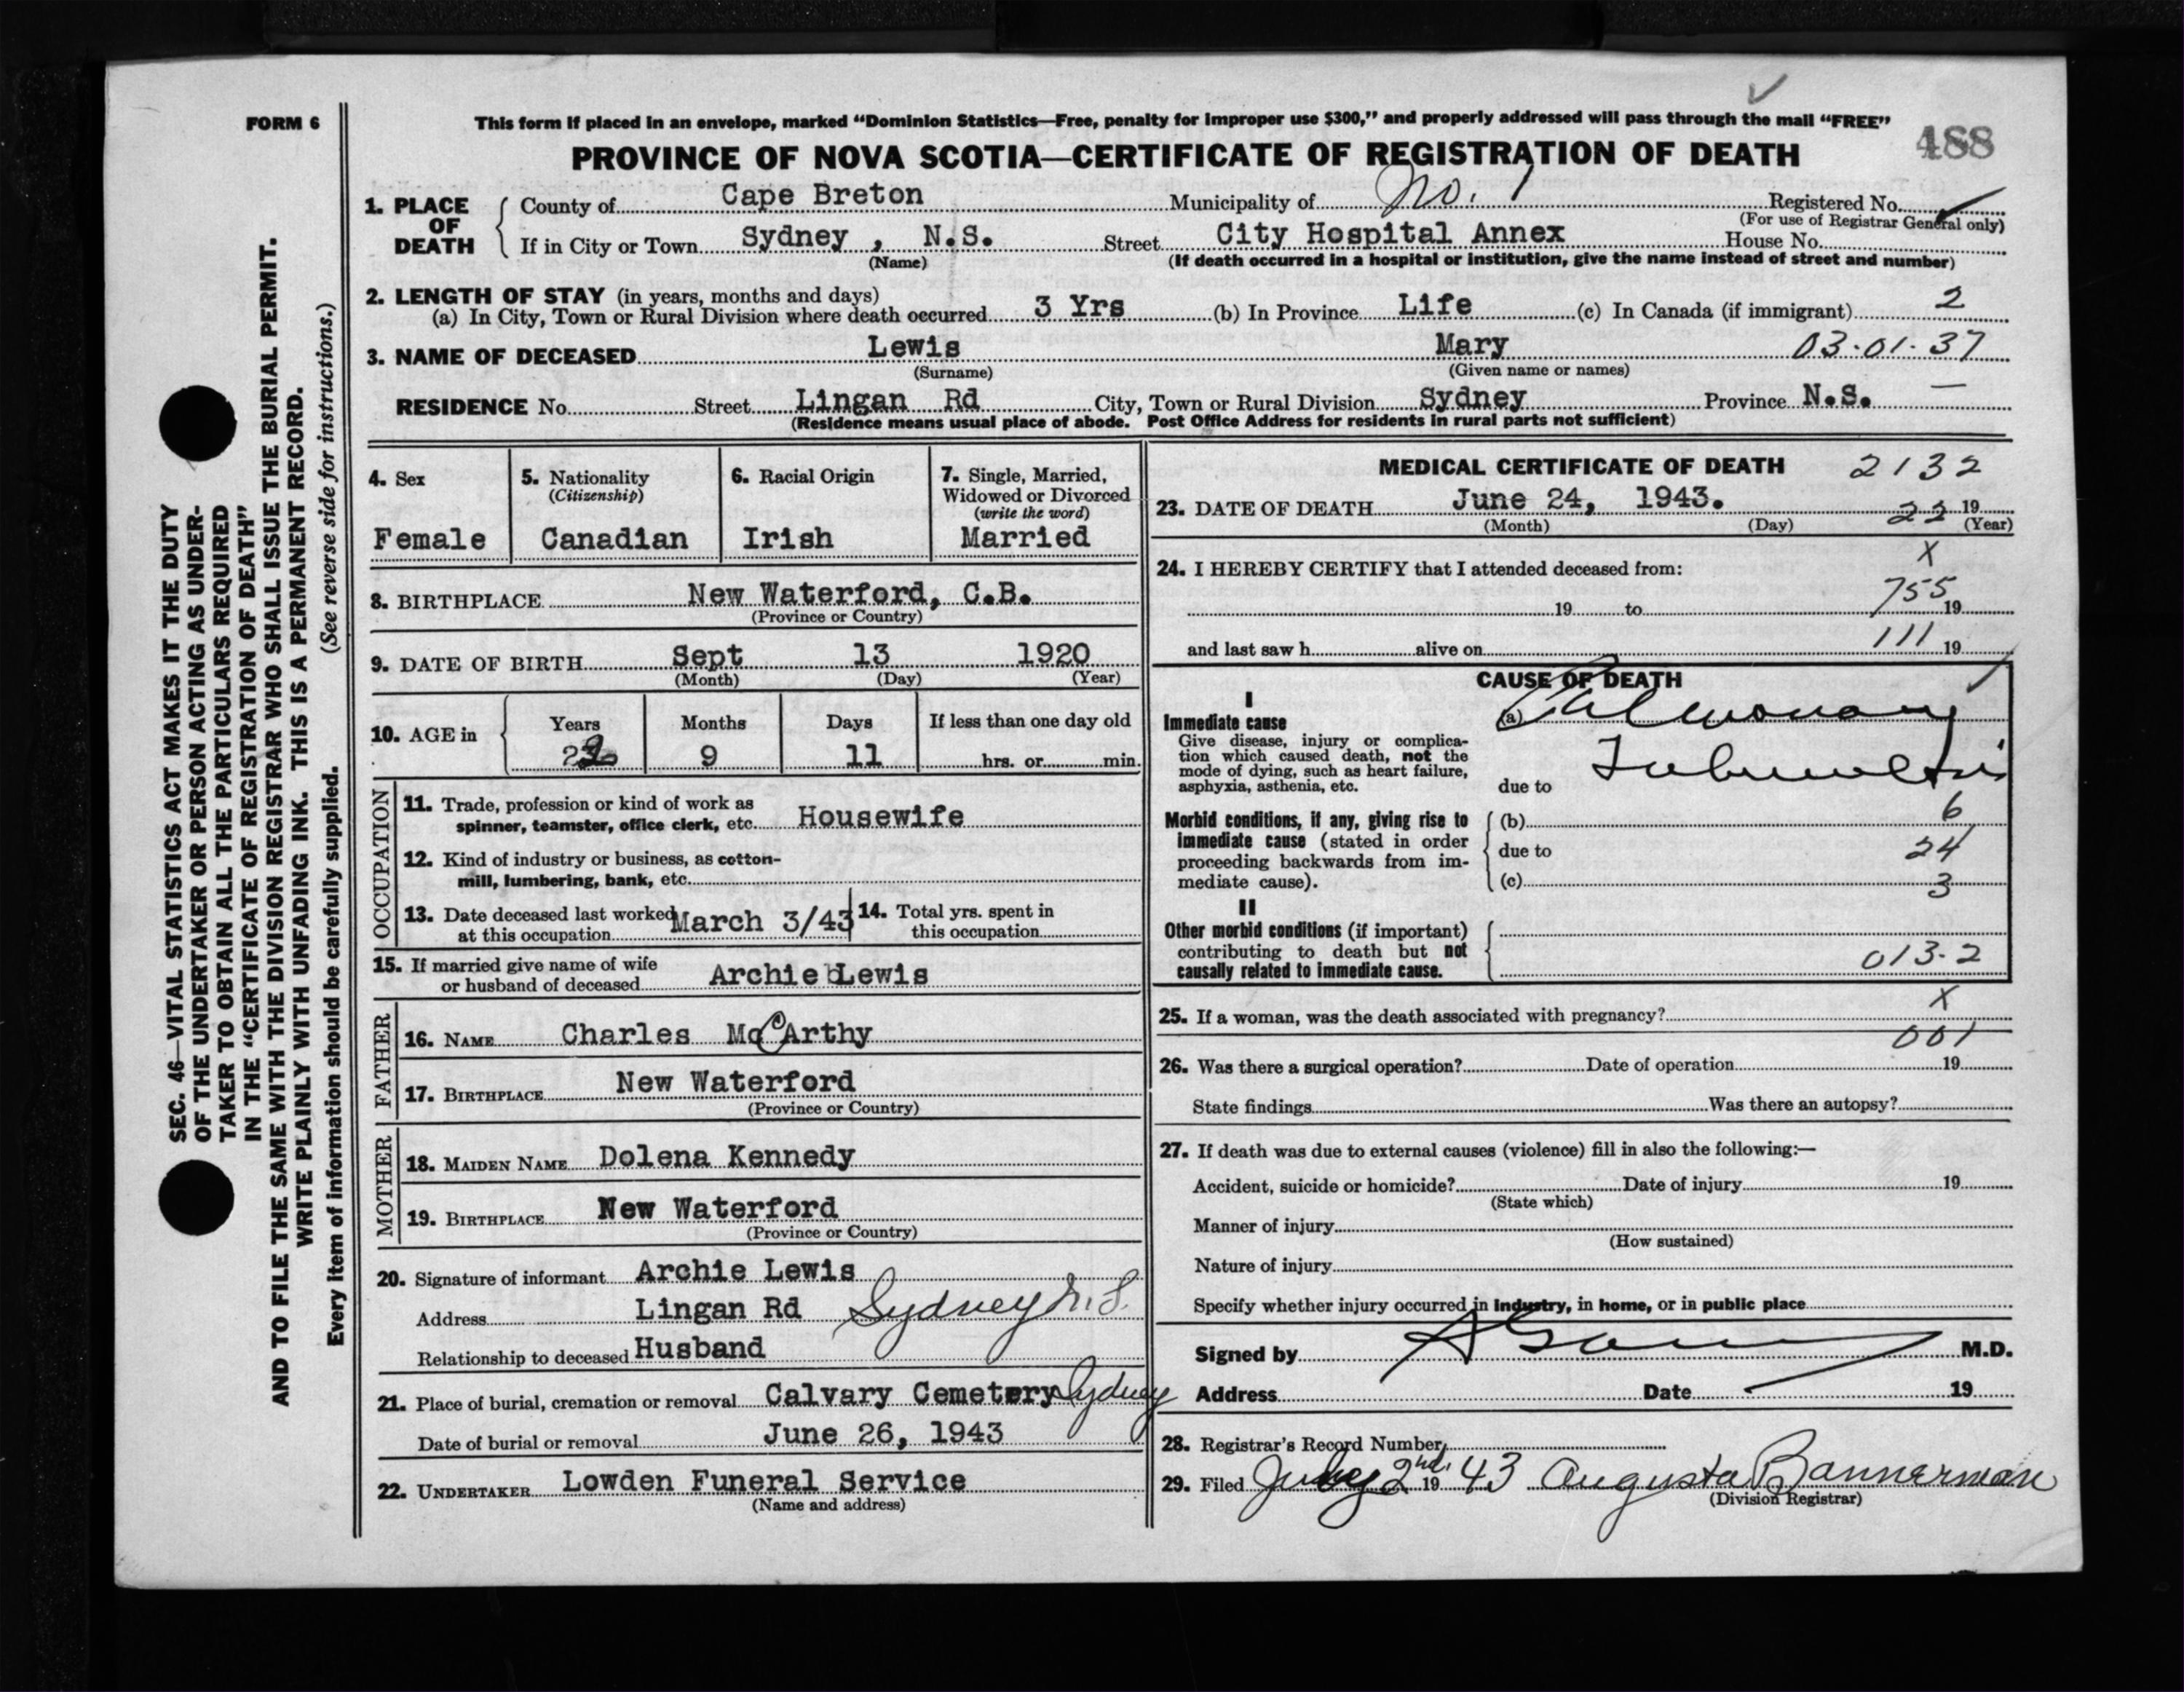 FORM 6
This form if placed in an envelope, marked “Dominion Statistics—Free, penalty for improper use $300,” and properly addressed will pass through the mail “FREE”
PROVINCE OF NOVA SCOTIA—CERTIFICATE OF REGISTRATION OF DEATH 488
1. PLACE OF DEATH
County of Cape Breton Municipality of No. 1 Registered No.
(For use of Registrar General only)
If in City or Town Sydney , N.S. Street City Hospital Annex House No.
(Name) (If death occurred in a hospital or institution, give the name instead of street and number)
2. LENGTH OF STAY (in years, months and days)
(a) In City, Town or Rural Division where death occurred 3 Yrs (b) In Province Life (c) In Canada (if immigrant) 2
3. NAME OF DECEASED Lewis Mary 03-01-37
(Surname) (Given name or names)
RESIDENCE No. Street Lingan Rd City, Town or Rural Division Sydney Province N.S. —
(Residence means usual place of abode. Post Office Address for residents in rural parts not sufficient)
4. Sex
Female
5. Nationality
(Citizenship)
Canadian
6. Racial Origin
Irish
7. Single, Married,
Widowed or Divorced
(write the word)
Married
8. BIRTHPLACE New Waterford, C.B.
(Province or Country)
9. DATE OF BIRTH Sept 13 1920
(Month) (Day) (Year)
10. AGE in
Years Months Days If less than one day old
9 11 hrs. or min.
OCCUPATION
11. Trade, profession or kind of work as
spinner, teamster, office clerk, etc. Housewife
12. Kind of industry or business, as cotton-
mill, lumbering, bank, etc.
13. Date deceased last worked
at this occupation March 3/43
14. Total yrs. spent in
this occupation
15. If married give name of wife
or husband of deceased Archie Lewis
FATHER
16. NAME Charles McCArthy
17. BIRTHPLACE New Waterford
(Province or Country)
MOTHER
18. MAIDEN NAME Dolena Kennedy
19. BIRTHPLACE New Waterford
(Province or Country)
20. Signature of informant Archie Lewis
Address Lingan Rd Sydney N.S.
Relationship to deceased Husband
21. Place of burial, cremation or removal Calvary Cemetery Sydney
Date of burial or removal June 26, 1943
22. UNDERTAKER Lowden Funeral Service
(Name and address)
MEDICAL CERTIFICATE OF DEATH 2132
23. DATE OF DEATH June 24, 1943. 22 19
(Month) (Day) (Year)
X
24. I HEREBY CERTIFY that I attended deceased from:
19 to 755 19
and last saw h alive on 111 19
CAUSE OF DEATH
I
Immediate cause
Give disease, injury or complica-
tion which caused death, not the
mode of dying, such as heart failure,
asphyxia, asthenia, etc.
(a) Pulmonary
Tuberculosis
due to
Morbid conditions, if any, giving rise to
immediate cause (stated in order
proceeding backwards from im-
mediate cause).
(b) 6
due to 24
(c) 3
II
Other morbid conditions (if important)
contributing to death but not
causally related to immediate cause.
013-2
X
25. If a woman, was the death associated with pregnancy?
001
26. Was there a surgical operation? Date of operation 19
State findings Was there an autopsy?
27. If death was due to external causes (violence) fill in also the following:—
Accident, suicide or homicide? Date of injury 19
(State which)
Manner of injury
(How sustained)
Nature of injury
Specify whether injury occurred in industry, in home, or in public place
Signed by M.D.
Address Date 19
28. Registrar's Record Number
29. Filed July 2nd. 19 43 Augusta Bannerman
(Division Registrar)
SEC. 46—VITAL STATISTICS ACT MAKES IT THE DUTY
OF THE UNDERTAKER OR PERSON ACTING AS UNDER-
TAKER TO OBTAIN ALL THE PARTICULARS REQUIRED
IN THE “CERTIFICATE OF REGISTRATION OF DEATH”
AND TO FILE THE SAME WITH THE DIVISION REGISTRAR WHO SHALL ISSUE THE BURIAL PERMIT.
WRITE PLAINLY WITH UNFADING INK. THIS IS A PERMANENT RECORD.
Every item of information should be carefully supplied. (See reverse side for instructions.)